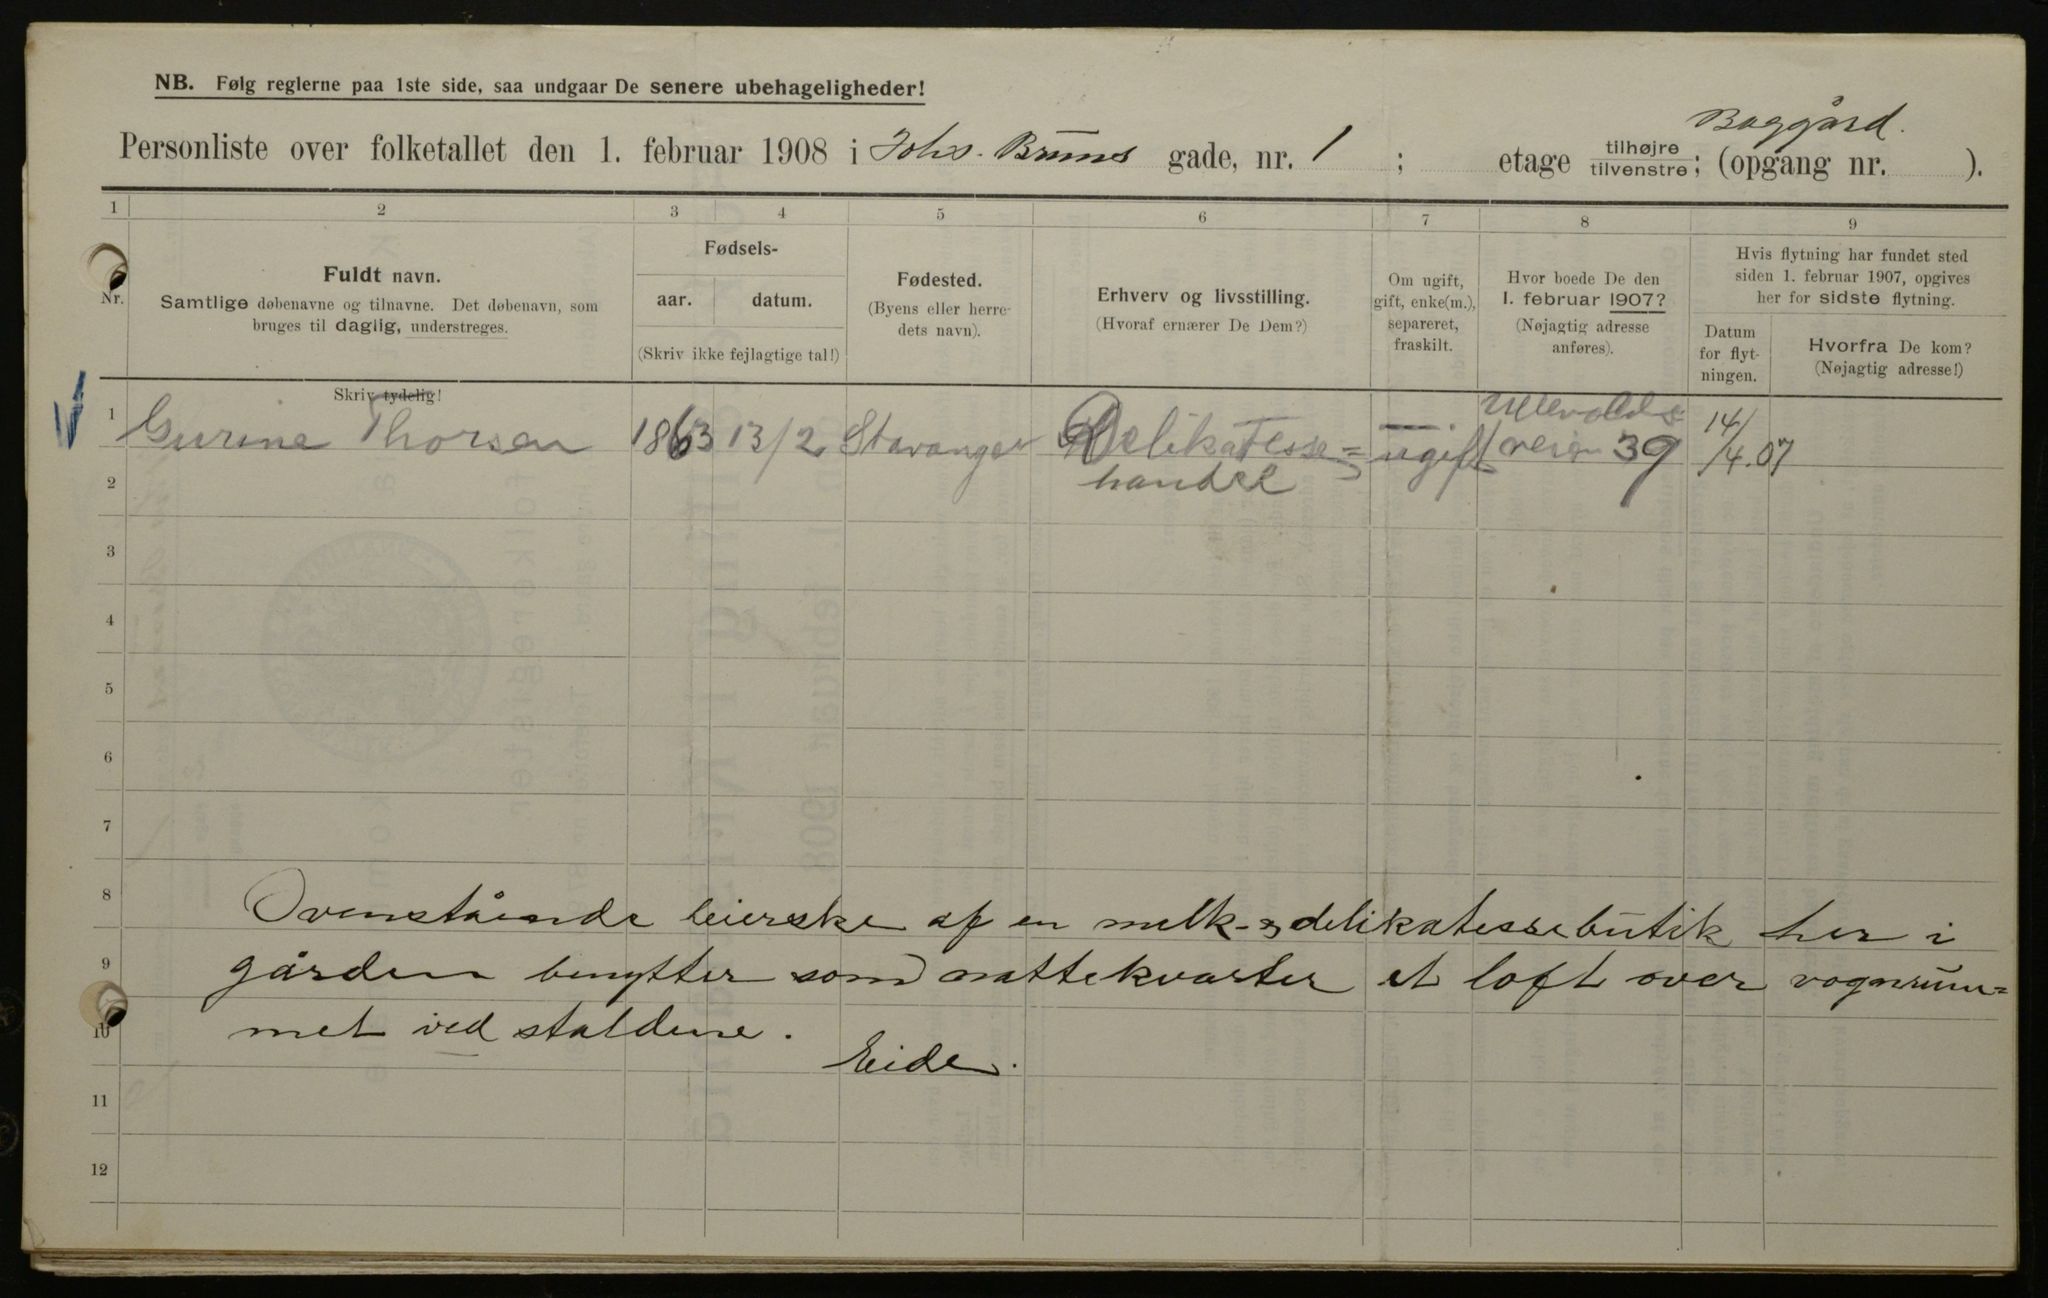 NB. Følg reglerne paa 1ste side, saa undgaar De senere ubehageligheder!
Baggård.
Personliste over folketallet den 1. februar 1908 i Johs. Bruns gade, nr. 1 ; etage tilhøjre tilvenstre; (opgang nr. ).
1 2 3 4 5 6 7 8 9
Nr.
Fuldt navn.
Samtlige døbenavne og tilnavne. Det døbenavn, som
bruges til daglig, understreges.
Skriv tydelig!
Fødsels-
aar. datum.
(Skriv ikke fejlagtige tal!)
Fødested.
(Byens eller herre-
dets navn).
Erhverv og livsstilling.
(Hvoraf ernærer De Dem?)
Om ugift,
gift, enke(m.),
separeret,
fraskilt.
Hvor boede De den
1. februar 1907?
(Nøjagtig adresse
anføres).
Hvis flytning har fundet sted
siden 1. februar 1907, opgives
her for sidste flytning.
Datum
for flyt-
ningen.
Hvorfra De kom?
(Nøjagtig adresse!)
1 Gurine Thorsen 1863 13/2 Stavanger Delikatesse= handel ugift Ullevolds veien 39 14/4.07
2
3
4
5
6
7
8
Ovenstående leierske af en melk- & delikatessebutik her i
9
gården benytter som nattekvarter et loft over vognrum=
10
met ved staldene.
Eide.
11
12